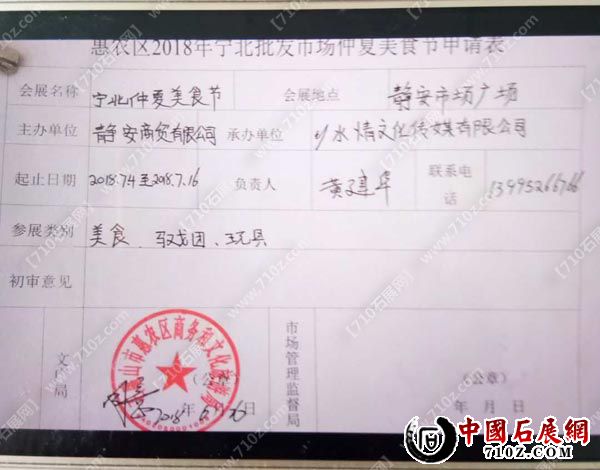 惠农区2018年宁北批发市场仲夏美食节申请表
会展名称 宁北仲夏美食节 会展地点 静安市场广场
主办单位 静安商贸有限公司 承办单位 水情文化传媒有限公司
起止日期 2018.7.4至2018.7.16 负责人 黄建华 联系电话 13995266766
参展类别 美食、马戏团、玩具
初审意见
文广局 (公章) 2018年6月26日
市场管理监督局 (公章) 年 月 日
山市惠农区商务和文化
【710石展网】
www.710z.com
中國石展网
www.710z.com